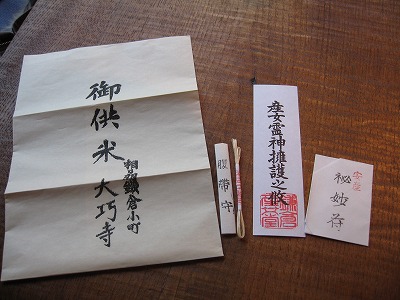 御供米
相州鎌倉小町
大巧寺
腹帯守
産女霊神擁護之攸
安産
秘妙符